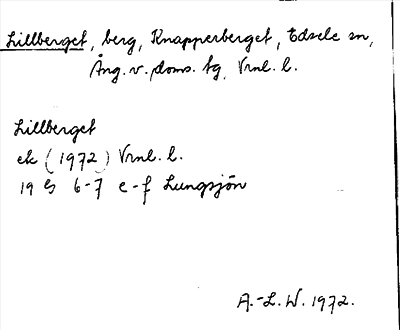 Lillberget, berg, Knapperberget, Edsele sn,
Ång. v. doms. tg, Vrnl. l.
Lillberget
ek (1972) Vrnl. l.
19 G 6-7 e-f Lungsjön
A.-L. W. 1972.